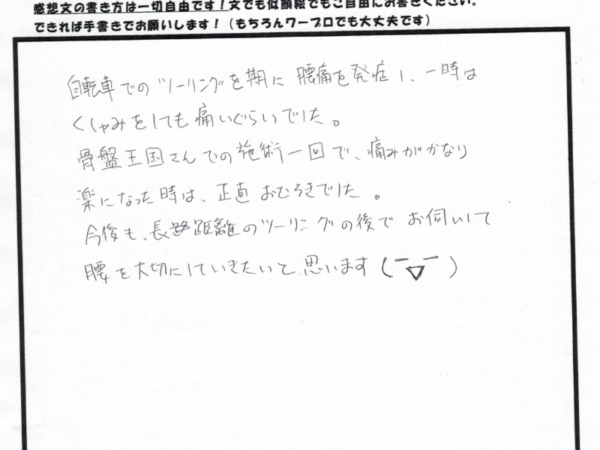 感想文の書き方は一切自由です！文でも似顔絵でもご自由にお書きください。
できれば手書きでお願いします！（もちろんワープロでも大丈夫です）
自転車でのツーリングを期に腰痛を発症し、一時は
くしゃみをしても痛いぐらいでした。
骨盤王国さんでの施術一回で、痛みがかなり
楽になった時は、正直おどろきでした。
今後も、長路距離のツーリングの後でお伺いして
腰を大切にしていきたいと思います(￣▽￣)